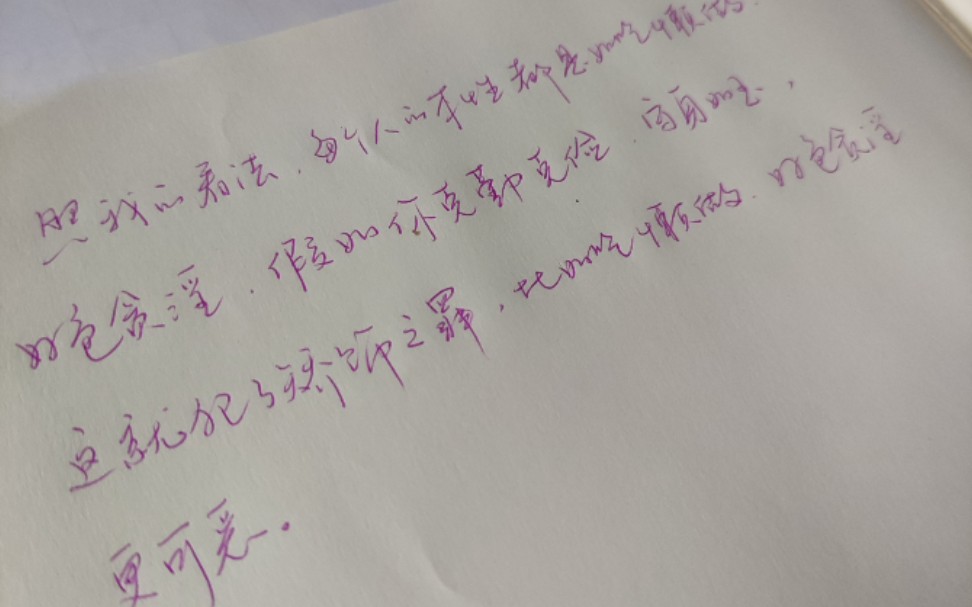 照我的看法，每个人的本性都是好吃懒做，
好色贪淫，假如你克勤克俭，守身如玉，
这就犯了矫饰之罪，比好吃懒做，好色贪淫
更可恶。